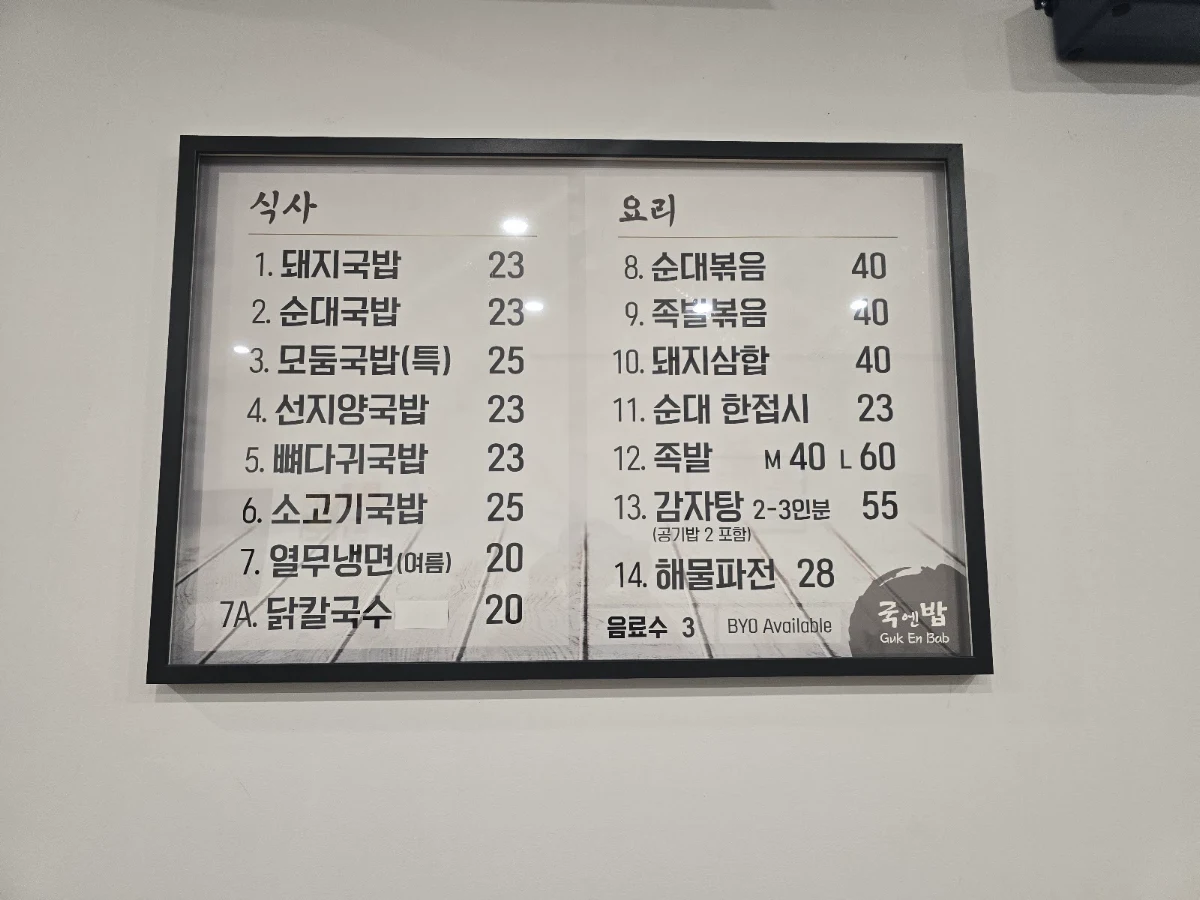 식사
1. 돼지국밥 23
2. 순대국밥 23
3. 모둠국밥(특) 25
4. 선지양국밥 23
5. 뼈다귀국밥 23
6. 소고기국밥 25
7. 열무냉면(여름) 20
7A. 닭칼국수 20
요리
8. 순대볶음 40
9. 족발볶음 40
10. 돼지삼합 40
11. 순대 한접시 23
12. 족발 M 40 L 60
13. 감자탕 2-3인분 55
(공기밥 2 포함)
14. 해물파전 28
음료수 3 BYO Available
국엔밥
Guk En Bab